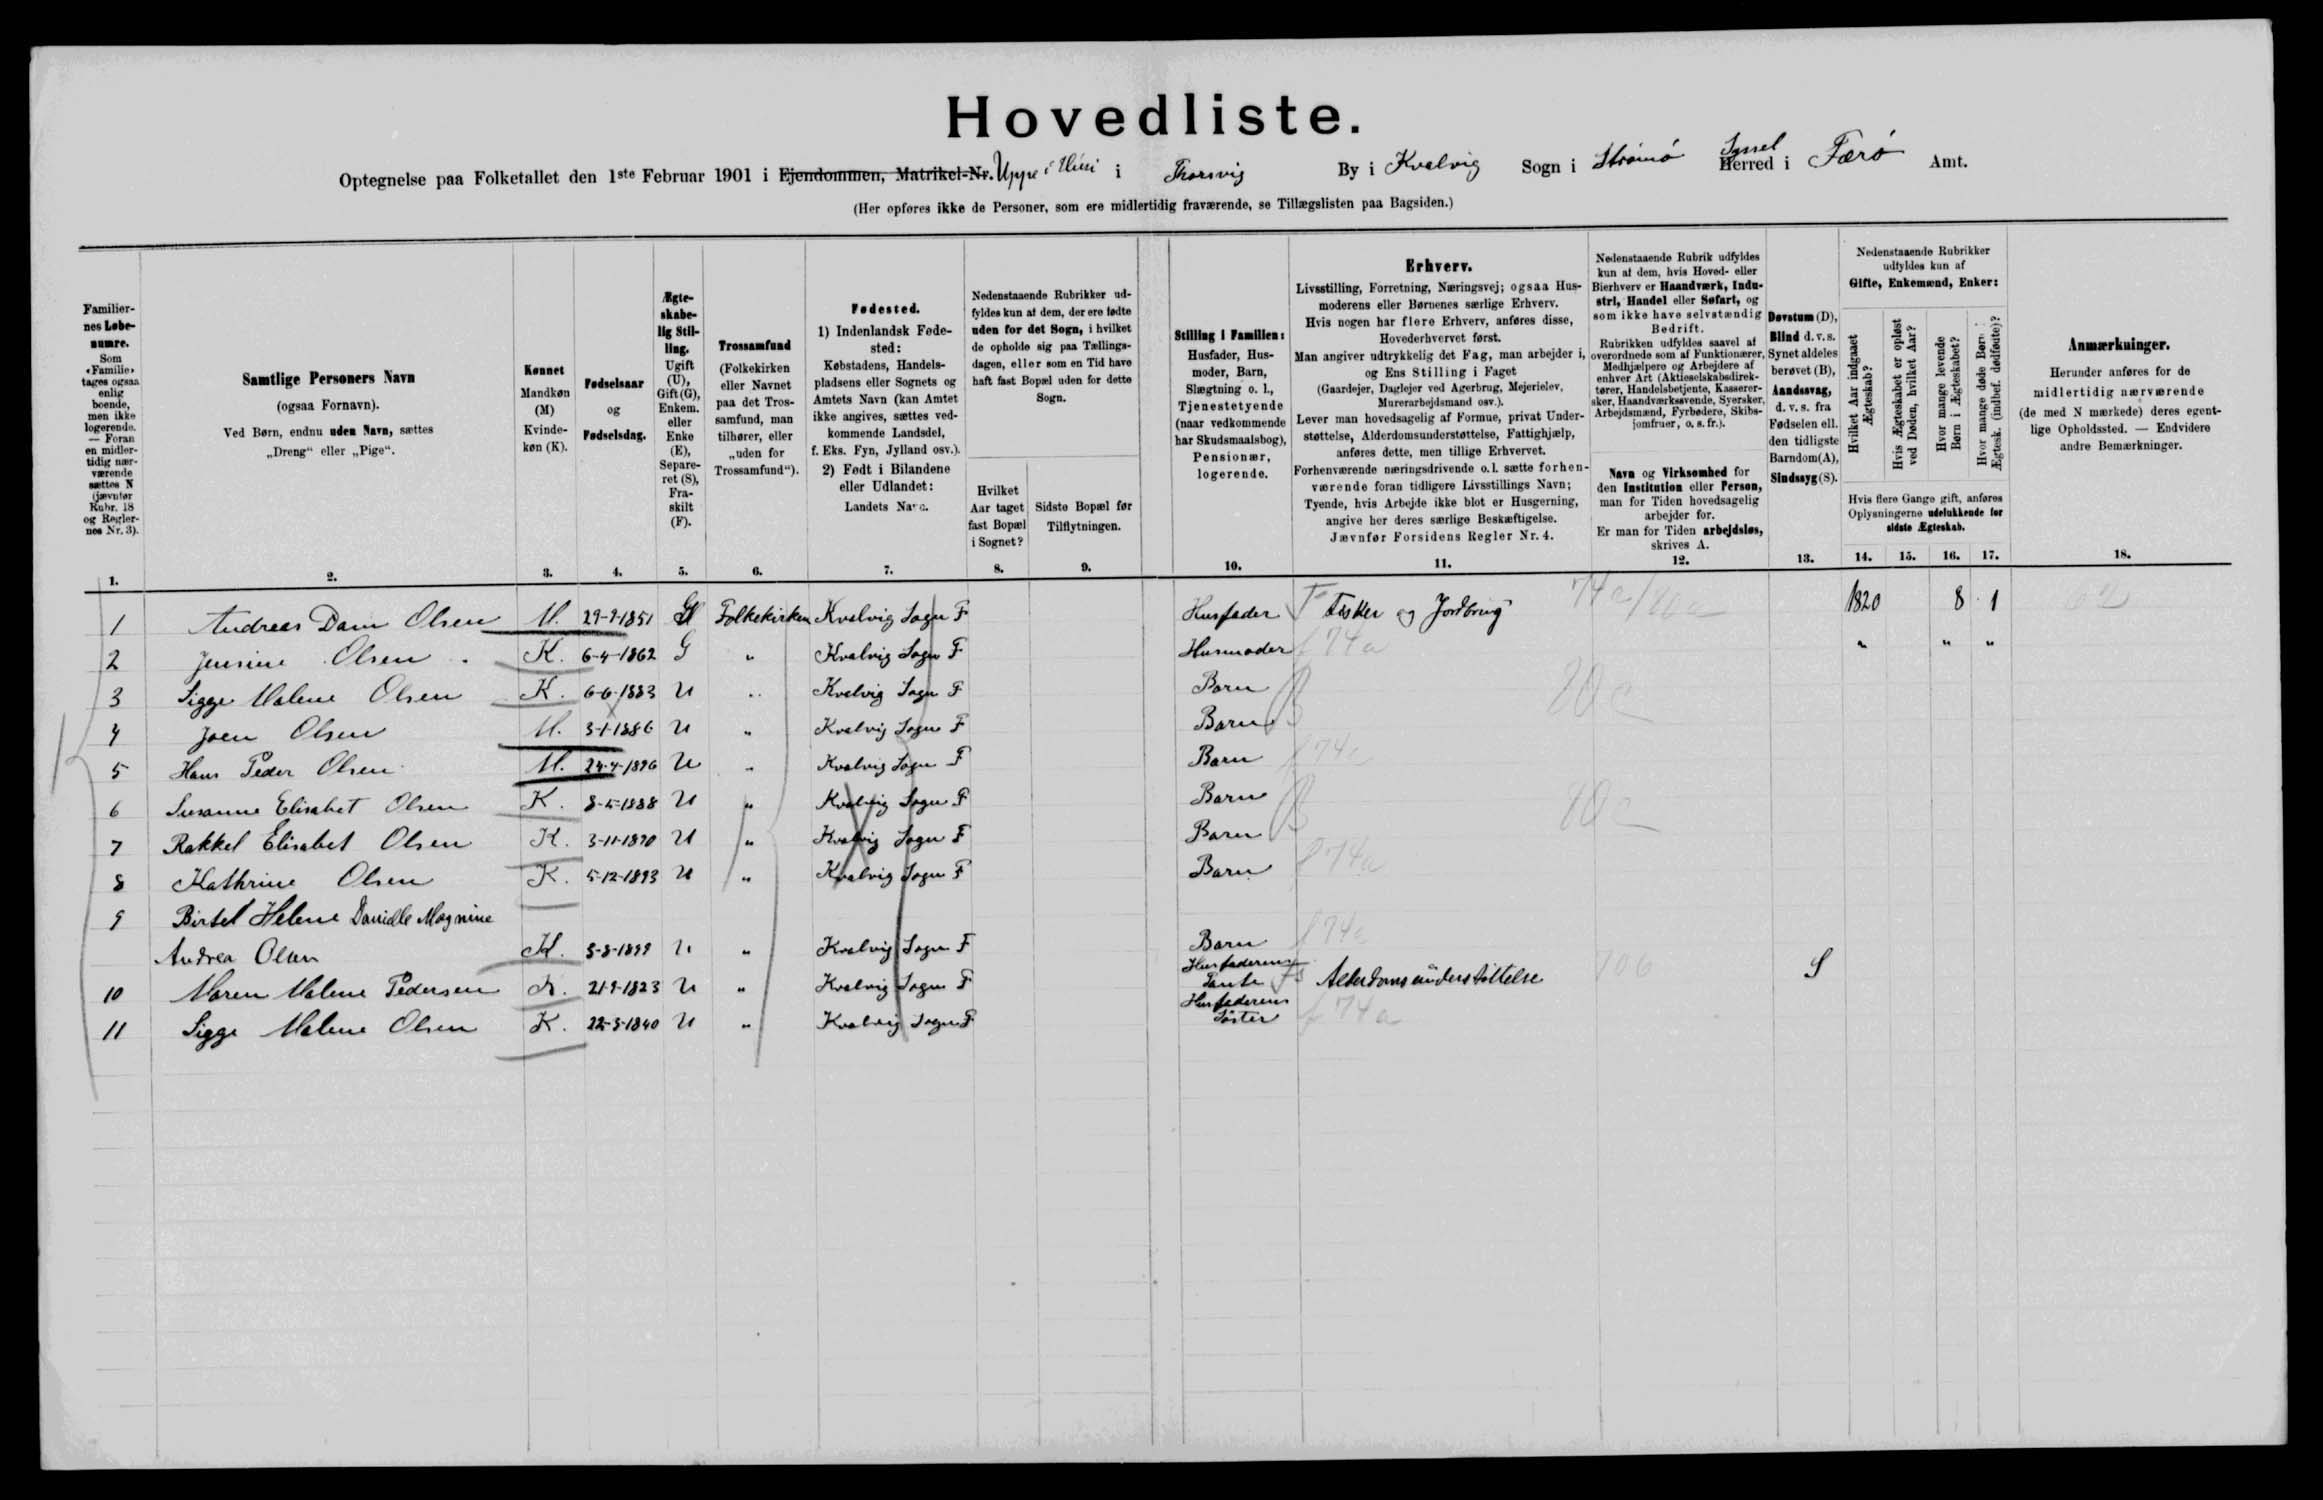 Hovedliste.
Optegnelse paa Folketallet den 1ste Februar 1901 i Ejendommen, Matrikel-Nr. Uppe i Húsi i Thorsvig By i Kvalvig Sogn i Strömö Syssel Herred i Færö Amt.
(Her opføres ikke de Personer, som ere midlertidig fraværende, se Tillægslisten paa Bagsiden.)
Familier-
nes Løbe-
numre.
Som
«Familie»
tages ogsaa
enlig
boende,
men ikke
logerende.
— Foran
en midler-
tidig nær-
værende
sættes N
(jævnfør
Rubr. 18
og Regler-
nes Nr. 3).
Samtlige Personers Navn
(ogsaa Fornavn).
Ved Børn, endnu uden Navn, sættes
„Dreng“ eller „Pige“.
Kønnet
Mandkøn
(M)
Kvinde-
køn (K).
Fødselsaar
og
Fødselsdag.
Ægte-
skabe-
lig Stil-
ling.
Ugift
(U),
Gift (G),
Enkem.
eller
Enke
(E),
Separe-
ret (S),
Fra-
skilt
(F).
Trossamfund
(Folkekirken
eller Navnet
paa det Tros-
samfund, man
tilhører, eller
„uden for
Trossamfund“).
Fødested.
1) Indenlandsk Føde-
sted:
Købstadens, Handels-
pladsens eller Sognets og
Amtets Navn (kan Amtet
ikke angives, sættes ved-
kommende Landsdel,
f. Eks. Fyn, Jylland osv.).
2) Født i Bilandene
eller Udlandet:
Landets Navn.
Nedenstaaende Rubrikker ud-
fyldes kun af dem, der ere fødte
uden for det Sogn, i hvilket
de opholde sig paa Tællings-
dagen, eller som en Tid have
haft fast Bopæl uden for dette
Sogn.
Hvilket
Aar taget
fast Bopæl
i Sognet?
Sidste Bopæl før
Tilflytningen.
Stilling i Familien:
Husfader, Hus-
moder, Barn,
Slægtning o. l.,
Tjenestetyende
(naar vedkommende
har Skudsmaalsbog),
Pensionær,
logerende.
Erhverv.
Livsstilling, Forretning, Næringsvej; ogsaa Hus-
moderens eller Børnenes særlige Erhverv.
Hvis nogen har flere Erhverv, anføres disse,
Hovederhvervet først.
Man angiver udtrykkelig det Fag, man arbejder i,
og Ens Stilling i Faget
(Gaardejer, Daglejer ved Agerbrug, Mejerielev,
Murerarbejdsmand osv.).
Lever man hovedsagelig af Formue, privat Under-
støttelse, Alderdomsunderstøttelse, Fattighjælp,
anføres dette, men tillige Erhvervet.
Forhenværende næringsdrivende o. l. sætte forhen-
værende foran tidligere Livsstillings Navn;
Tyende, hvis Arbejde ikke blot er Husgerning,
angive her deres særlige Beskæftigelse.
Jævnfør Forsidens Regler Nr. 4.
Nedenstaaende Rubrik udfyldes
kun af dem, hvis Hoved- eller
Bierhverv er Haandværk, Indu-
stri, Handel eller Søfart, og
som ikke have selvstændig
Bedrift.
Rubrikken udfyldes saavel af
overordnede som af Funktionærer,
Medhjælpere og Arbejdere af
enhver Art (Aktieselskabsdirek-
tører, Handelsbetjente, Kasserer-
sker, Haandværkssvende, Syersker,
Arbejdsmænd, Fyrbødere, Skibs-
jomfruer, o. s. fr.).
Navn og Virksomhed for
den Institution eller Person,
man for Tiden hovedsagelig
arbejder for.
Er man for Tiden arbejdsløs,
skrives A.
Døvstum (D),
Blind d. v. s.
Synet aldeles
berøvet (B),
Aandssvag,
d. v. s. fra
Fødselen ell.
den tidligste
Barndom (A),
Sindssyg (S).
Nedenstaaende Rubrikker
udfyldes kun af
Gifte, Enkemænd, Enker:
Hvilket Aar indgaaet
Ægteskab?
Hvis Ægteskabet er opløst
ved Døden, hvilket Aar?
Hvor mange levende
Børn i Ægteskabet?
Hvor mange døde Børn i
Ægtesk. (indbef. dødfødte)?
Hvis flere Gange gift, anføres
Oplysningerne udelukkende for
sidste Ægteskab.
Anmærkninger.
Herunder anføres for de
midlertidig nærværende
(de med N mærkede) deres egent-
lige Opholdssted. — Endvidere
andre Bemærkninger.
1. 2. 3. 4. 5. 6. 7. 8. 9. 10. 11. 12. 13. 14. 15. 16. 17. 18.
1 Andreas Dam Olsen M. 29-9-1851 G Folkekirken Kvalvig Sogn F Husfader Fisker og Jordbrug 74a/10a 1820 8 1
2 Jensine Olsen K. 6-4-1862 G " Kvalvig Sogn F Husmoder f 74a " " "
3 Sigge Malene Olsen K. 6-6-1883 U " Kvalvig Sogn F Barn
4 Joen Olsen M. 3-1-1886 U " Kvalvig Sogn F Barn
5 Hans Peder Olsen M. 24-4-1896 U " Kvalvig Sogn F Barn f 74a
6 Susanne Elisabet Olsen K. 8-5-1888 U " Kvalvig Sogn F Barn
7 Rakkel Elisabet Olsen K. 3-11-1890 U " Kvalvig Sogn F Barn
8 Kathrine Olsen K. 5-12-1893 U " Kvalvig Sogn F Barn f 74a
9 Birtel Helene Danielle Magnine
Andrea Olsen K. 3-8-1899 U " Kvalvig Sogn F Barn f 74a
10 Maren Malene Pedersen K. 21-9-1823 U " Kvalvig Sogn F Husfaderens Tante Alderdomsunderstöttelse 106 S
11 Sigge Malene Olsen K. 22-3-1840 U " Kvalvig Sogn F Husfaderens Söster f 74a